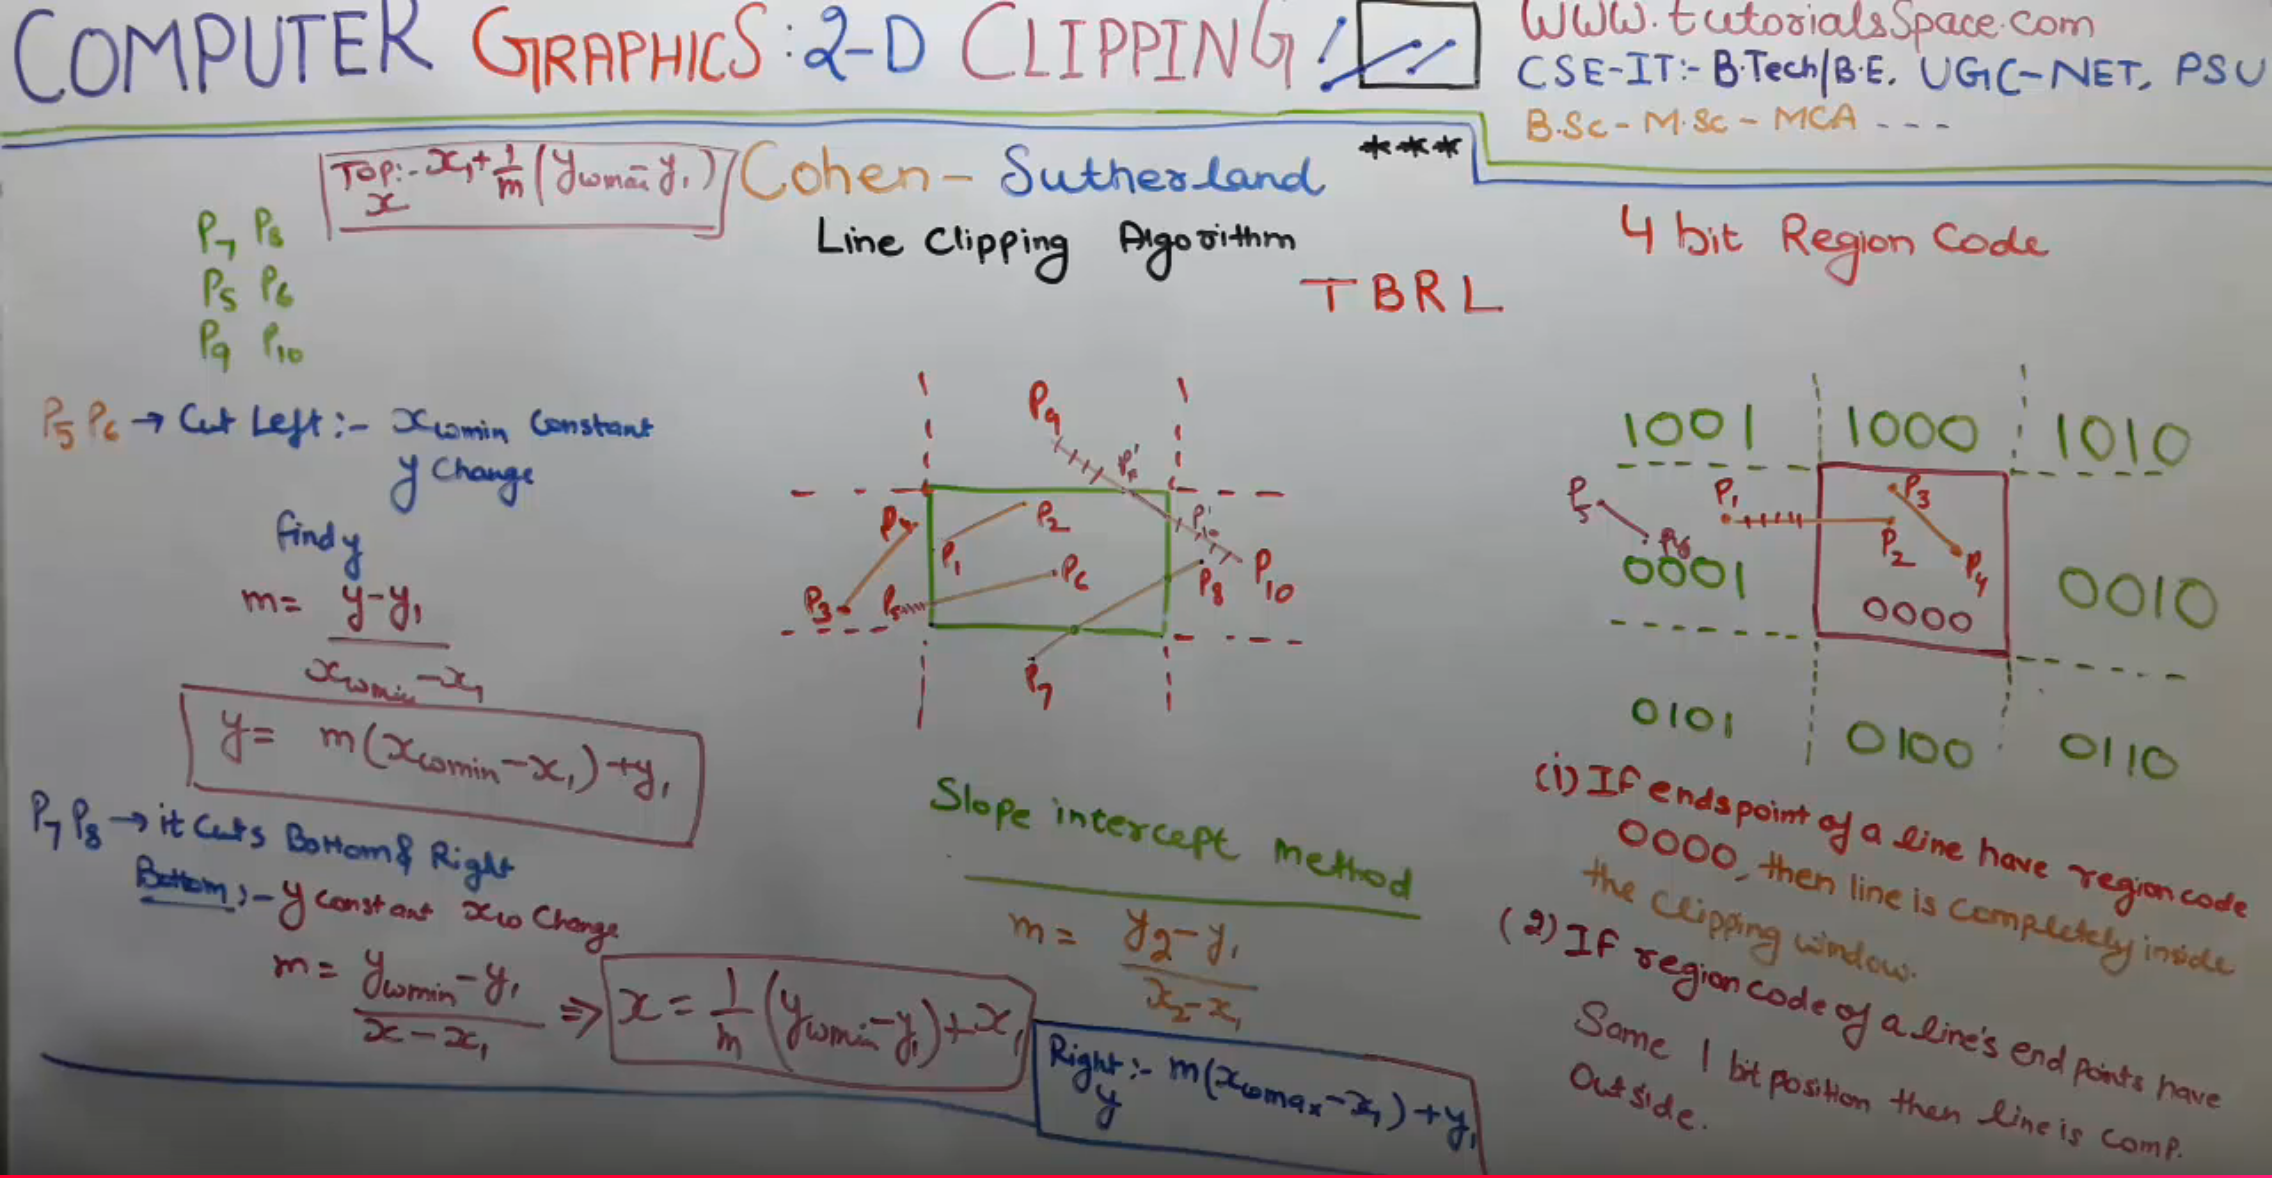 COMPUTER GRAPHICS: 2-D CLIPPING
www.tutorialsSpace.com
CSE-IT:- B.Tech/B.E. UGC-NET, PSU
B.Sc - M.Sc - MCA - - -
Top:- x₁ + 1/m (ywmax - y₁)
x
Cohen - Sutherland ***
Line Clipping Algorithm
T B R L
4 bit Region Code
P₇ P₈
P₅ P₆
P₉ P₁₀
P₅ P₆ → Cut Left :- xwmin Constant
y Change
find y
m = y-y₁ / xwmin - x₁
y = m(xwmin - x₁) + y₁
P₇ P₈ → it Cuts Bottom & Right
Bottom :- y constant xw Change
m = ywmin - y₁ / x - x₁ ⇒ x = 1/m (ywmin - y₁) + x₁
P₉
P₉'
P₄
P₂
P₁₀'
P₁
P₆
P₈
P₁₀
P₃
P₅
P₇
Slope intercept method
m = y₂ - y₁ / x₂ - x₁
Right :- m(xwmax - x₁) + y₁
y
1001 1000 1010
P₅ P₁ P₃
P₆ P₂ P₄
0001 0000 0010
0101 0100 0110
(i) If endspoint of a line have region code
0000, then line is completely inside
the clipping window.
(2) If region code of a line's end points have
Same 1 bit position then line is comp.
Outside.